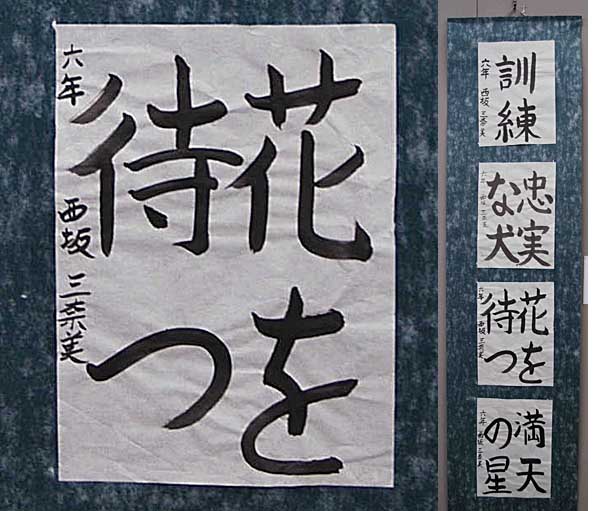 花を
待つ
六年 西坂 三奈美
訓練
六年 西坂 三奈美
忠実
な犬
六年 西坂 三奈美
花を
待つ
六年 西坂 三奈美
満天
の星
六年 西坂 三奈美